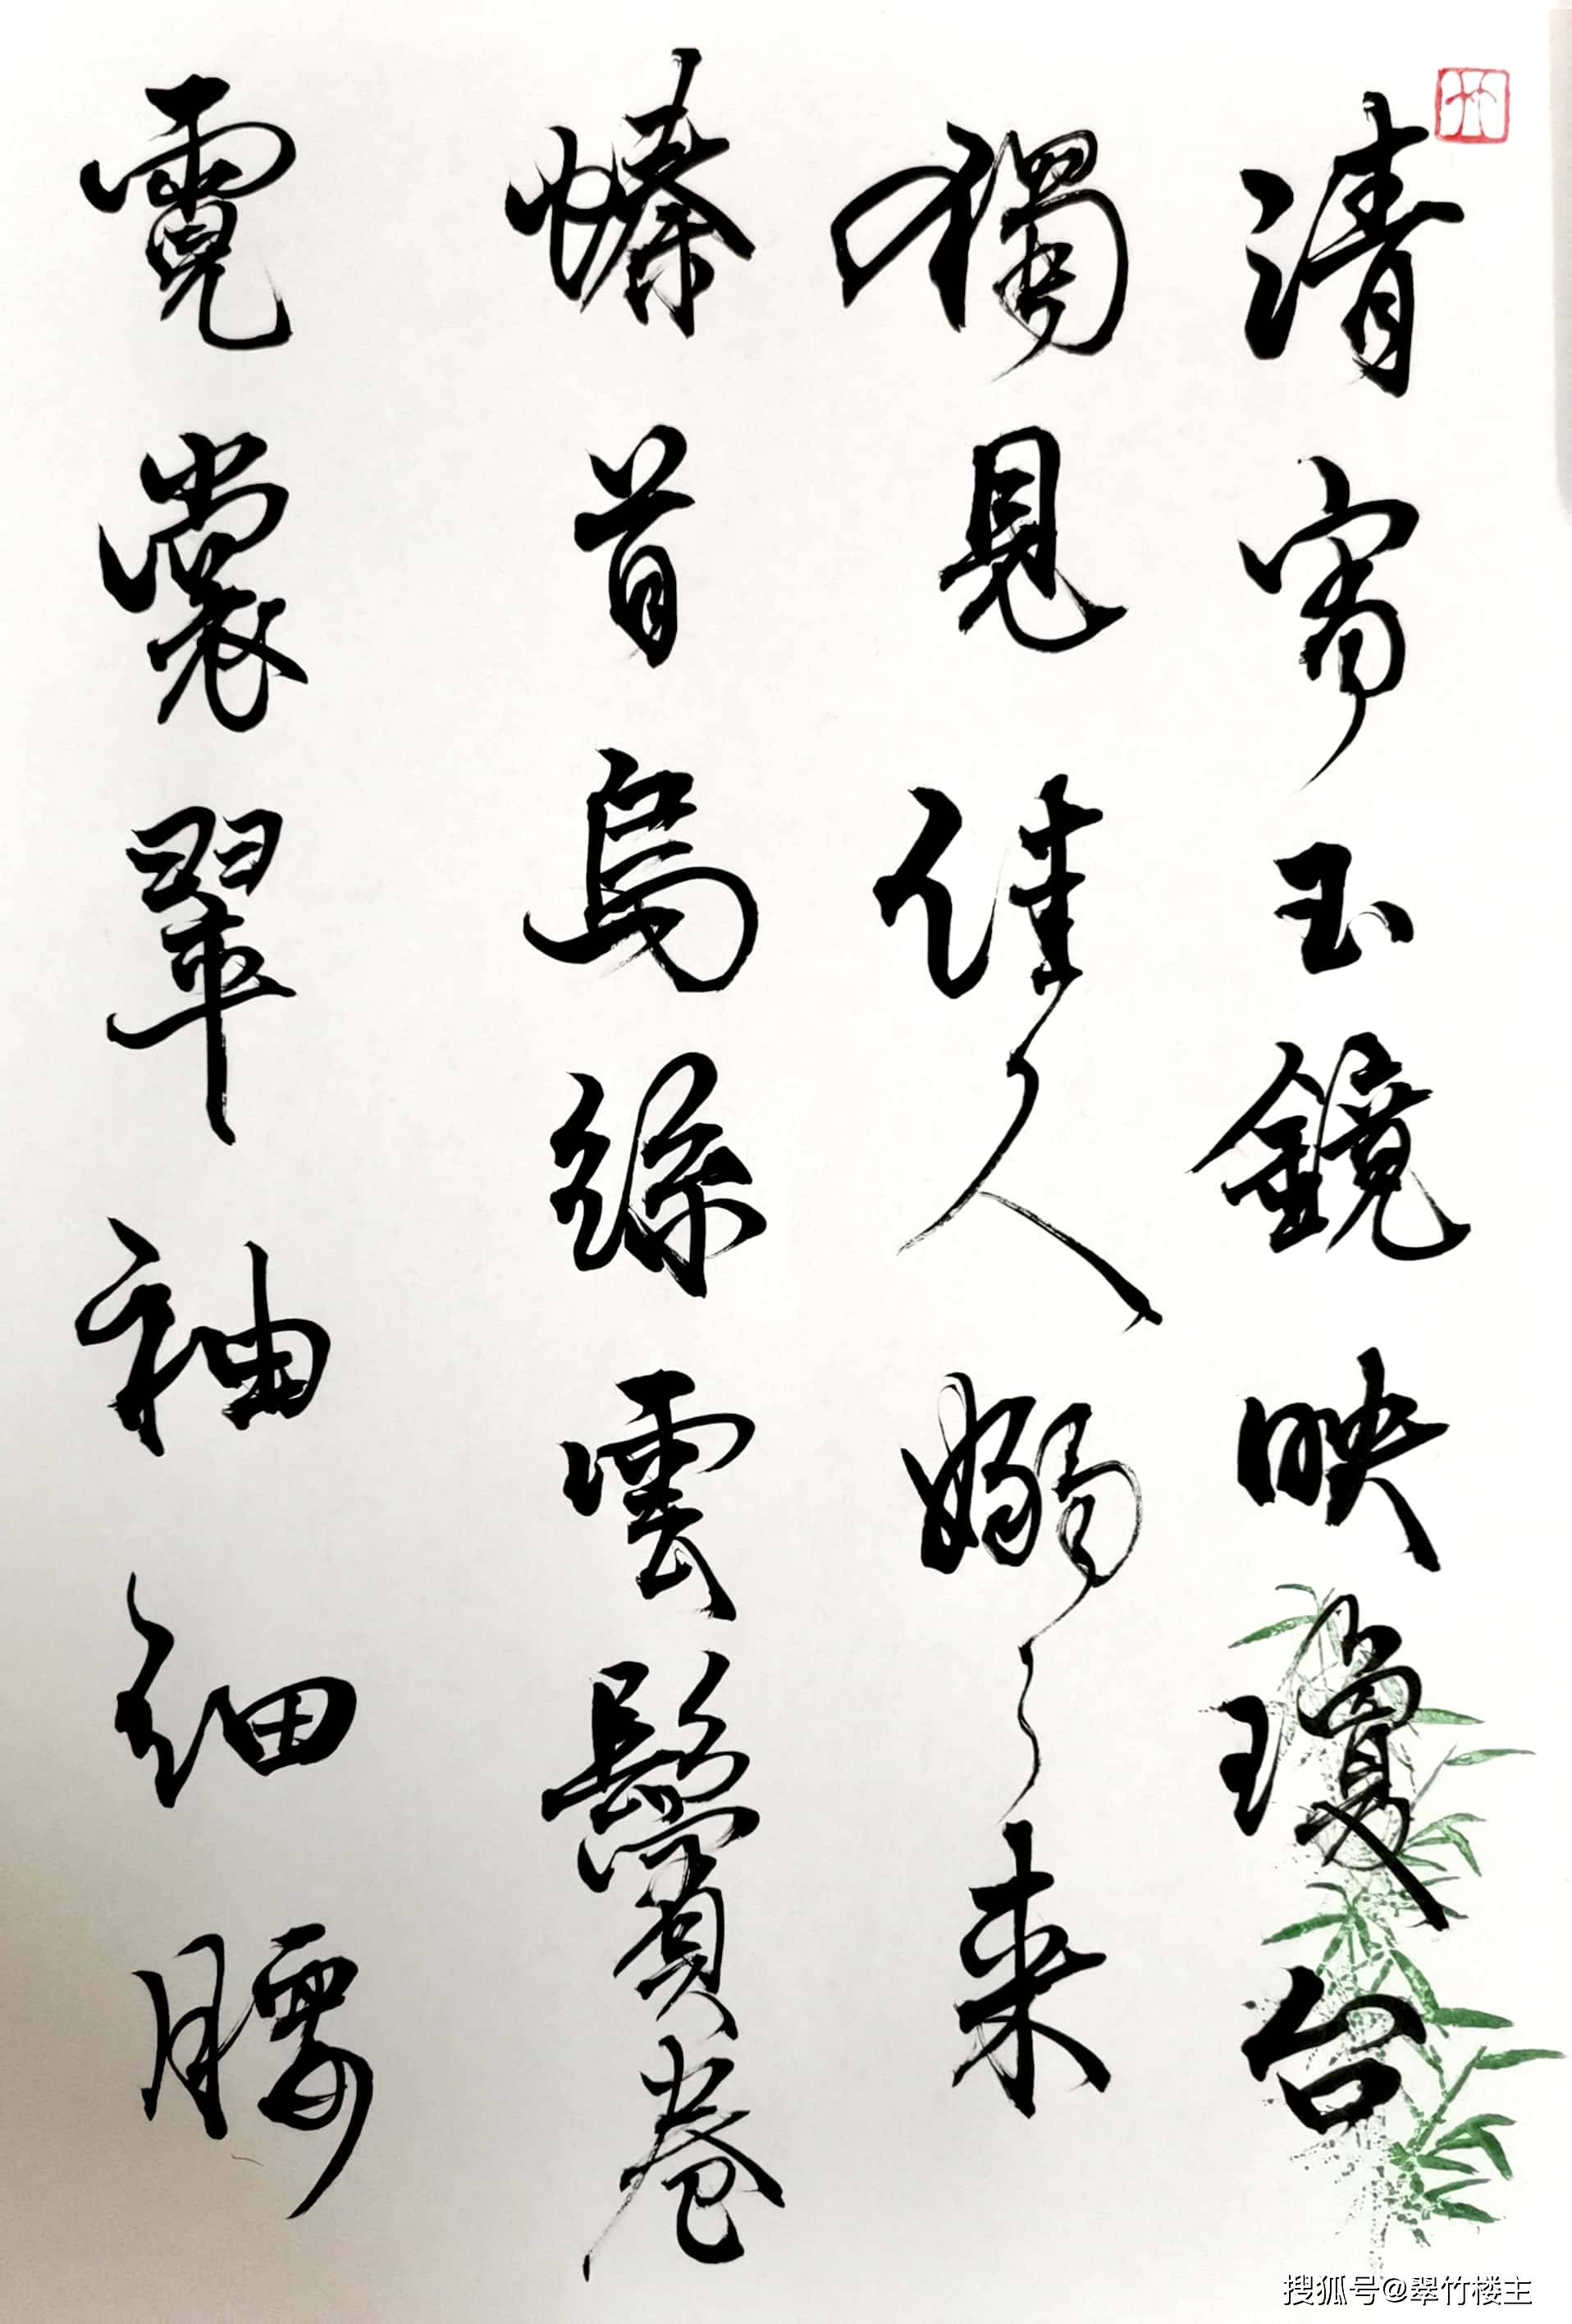 清宵玉鏡映瓊台
獨見佳人嫋々来
螓首烏絲雲鬢卷
霓裳翠袖細腰
竹
搜狐号@翠竹楼主